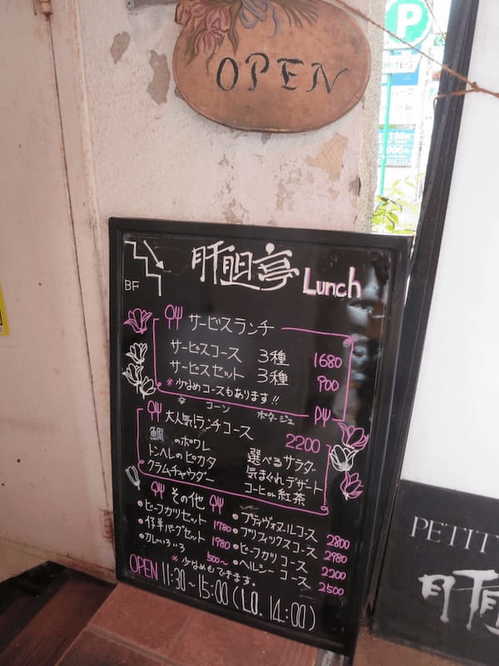 OPEN
P
肝胆亭 Lunch
BF
サービスランチ
サービスコース 3種 1680
サービスセット 3種 900
*少なめコースもあります!!
コーン ポタージュ
大人気!ランチコース
2200
鯛のポワレ 選べるサラダ
トンヘレのピカタ 気まぐれデザート
クラムチャウダー コーヒor紅茶
その他
•ビーフカツセット 1780
•仔羊バーグセット 1980
•カレーいろいろ 500〜
•プティヴォヌールコース 2800
•プリフィックスコース 2980
•ビーフカツコース 2200
•ヘルシーコース 2500
*少なめもできます。
OPEN 11:30~15:00(L.O. 14:00)
PETIT
肝胆